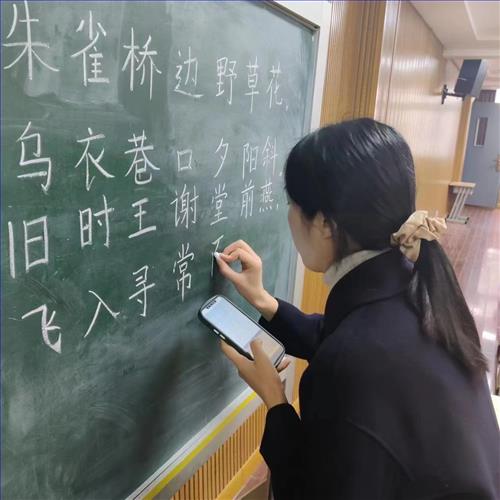 朱雀桥边野草花,
乌衣巷口夕阳斜.
旧时王谢堂前燕,
飞入寻常